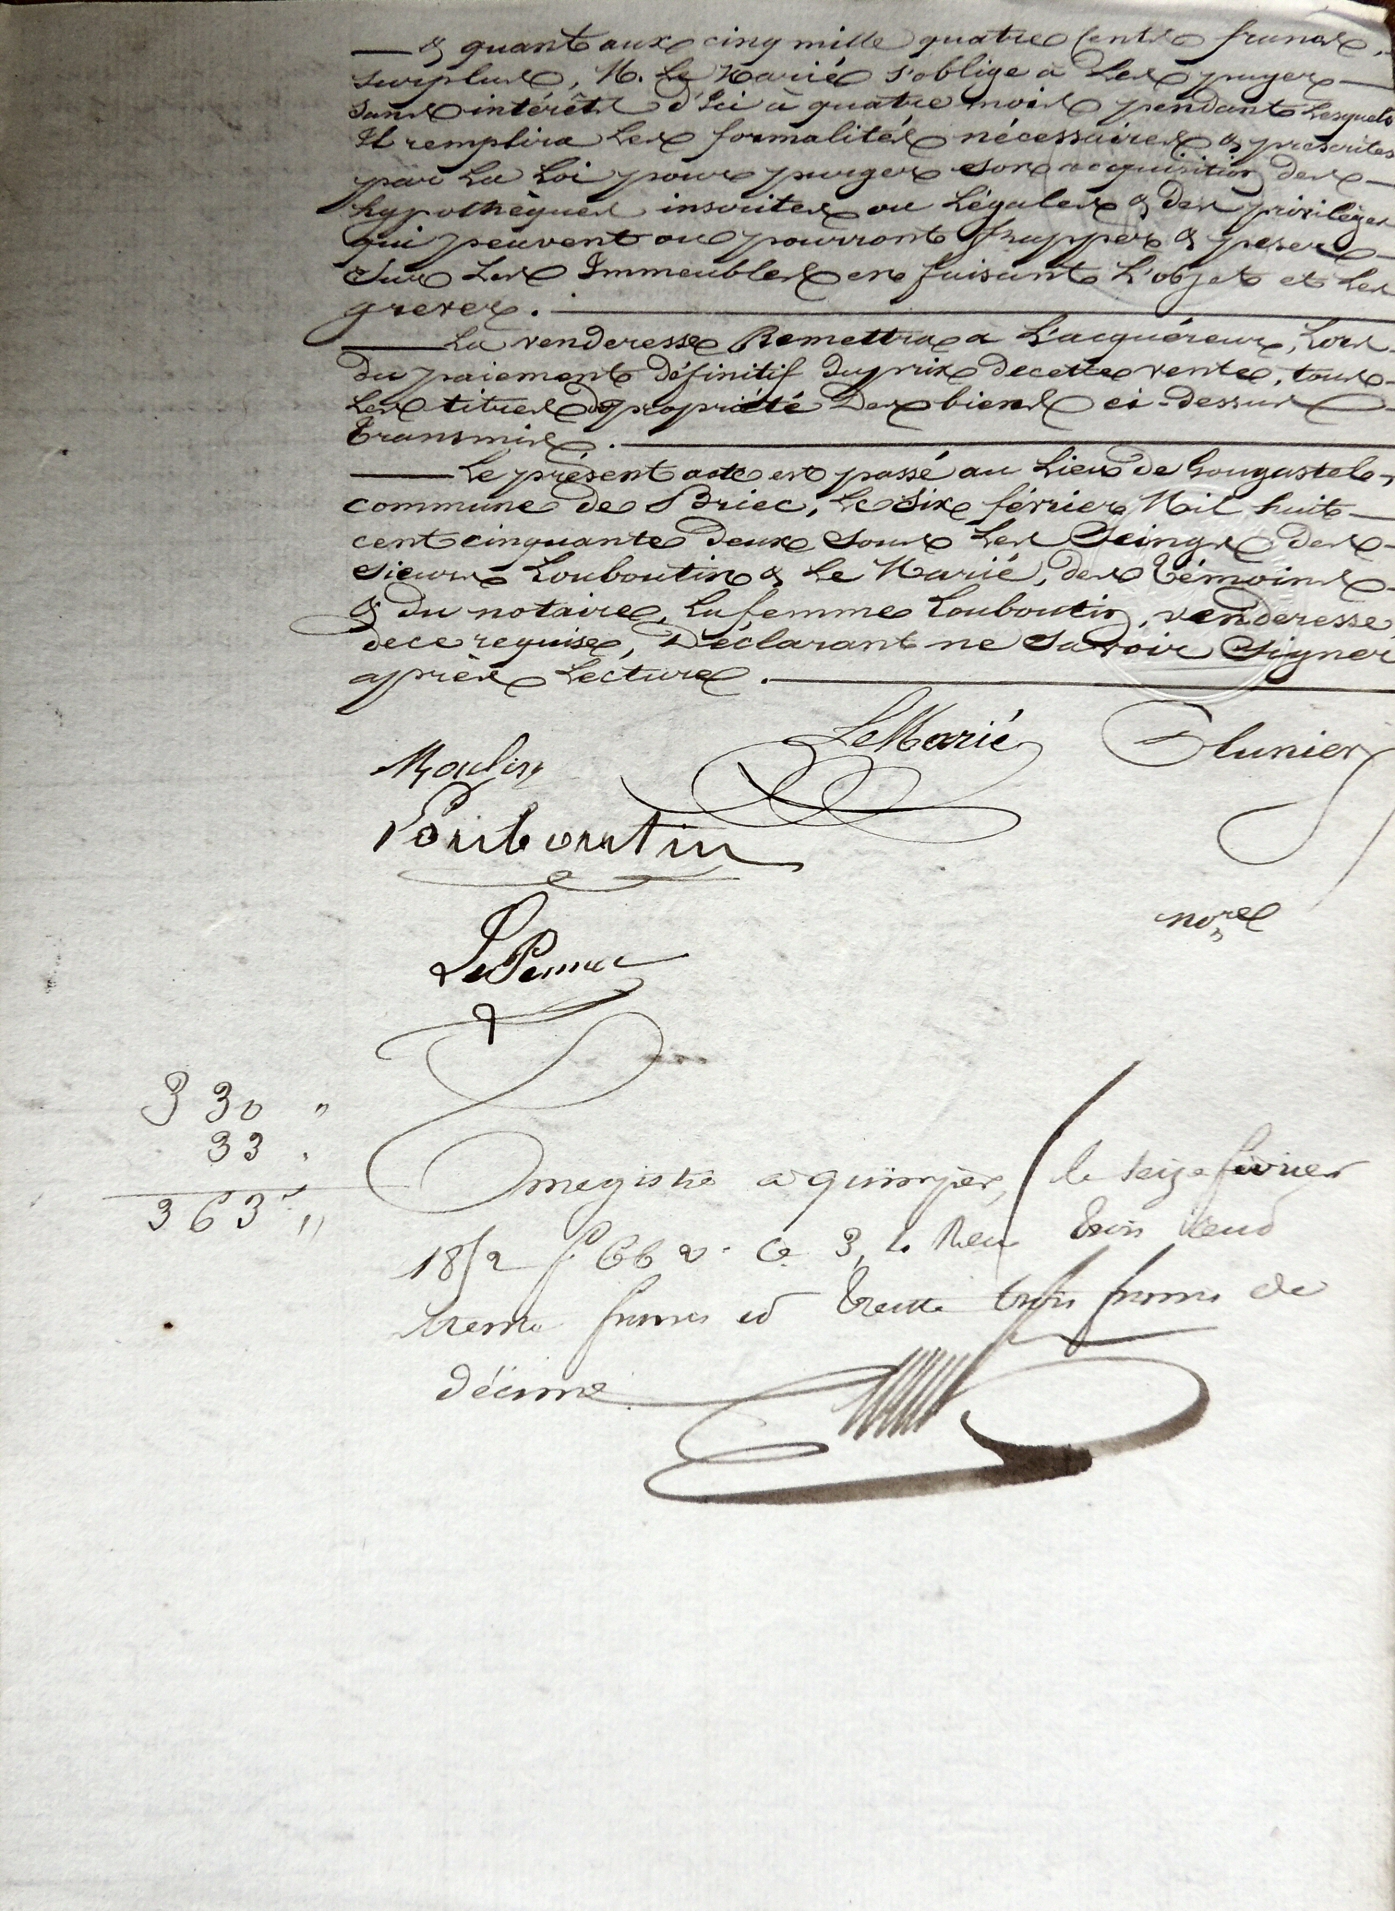 & quant aux cinq mille quatre cents francs,
surplus, M. Le Marié s'oblige à les payer
sans intérêts d'ici à quatre mois pendant lesquels
Il remplira les formalités nécessaires & prescrites
par la loi pour purger son acquisition des
hypothèques inscrites ou légales & des privilèges
qui peuvent ou pourront frapper & peser
sur les Immeubles en faisant l'objet et les
grever.
La venderesse Remettra à l'acquéreur, lors
du paiement définitif du prix de cette vente, tous
les titres de propriété des biens ci-dessus
transmis.
Le présent acte est passé au lieu de Gougastel,
commune de Briec, le six février Mil huit
cent cinquante deux sous les Seings des
sieurs Louboutin & Le Marié, des témoins
& du notaire, la femme Louboutin, venderesse
de ce requise, Déclarant ne savoir signer
après lecture.
LeMarié
Moulin
Louboutin
nore
330 "
33
363f "
Enregistré a quimper, le seize février
1852 f° 66 v° Ce 3, Reçu trois cent
trente francs et trente trois francs de
décime